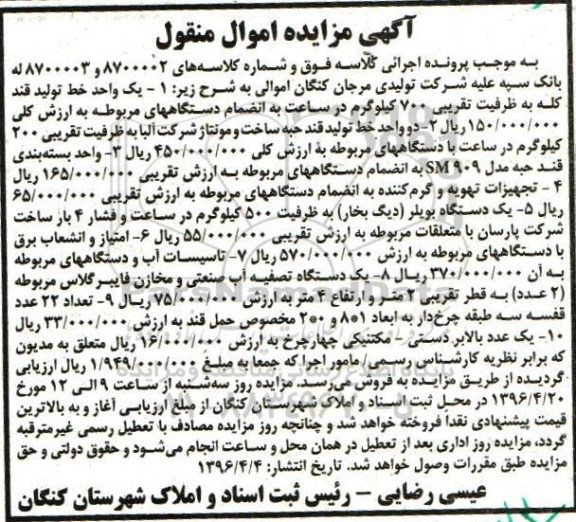 آگهی مزایده اموال منقول
به موجب پرونده اجرائی کلاسه فوق و شماره کلاسه‌های ۸۷۰۰۰۰۲ و ۸۷۰۰۰۰۳ له
بانک سپه علیه شرکت تولیدی مرجان کنگان اموالی به شرح زیر: ۱ - یک واحد خط تولید قند
کله به ظرفیت تقریبی ۷۰۰ کیلوگرم در ساعت به انضمام دستگاههای مربوطه به ارزش کلی
۱۵۰/۰۰۰/۰۰۰ ریال ۲- دو واحد خط تولید قند حبه ساخت و مونتاژ شرکت آلبا به ظرفیت تقریبی ۲۰۰
کیلوگرم در ساعت با دستگاههای مربوطه به ارزش کلی ۴۵۰/۰۰۰/۰۰۰ ریال ۳- واحد بسته‌بندی
قند حبه مدل SM ۹۰۹ به انضمام دستگاههای مربوطه به ارزش تقریبی ۱۶۵/۰۰۰/۰۰۰ ریال
۴ - تجهیزات تهویه و گرم‌کننده به انضمام دستگاههای مربوطه به ارزش تقریبی ۶۵/۰۰۰/۰۰۰
ریال ۵- یک دستگاه بویلر (دیگ بخار) به ظرفیت ۵۰۰ کیلوگرم در ساعت و فشار ۴ بار ساخت
شرکت پارسان با متعلقات مربوطه به ارزش تقریبی ۵۵/۰۰۰/۰۰۰ ریال ۶- امتیاز و انشعاب برق
با دستگاههای مربوطه به ارزش ۵۷۰/۰۰۰/۰۰۰ ریال ۷- تاسیسات آب و دستگاههای مربوطه
به آن ۳۷۰/۰۰۰/۰۰۰ ریال ۸- یک دستگاه تصفیه آب صنعتی و مخازن فایبر گلاس مربوطه
(۲ عدد) به قطر تقریبی ۲ متر و ارتفاع ۴ متر به ارزش ۷۵/۰۰۰/۰۰۰ ریال ۹- تعداد ۲۲ عدد
قفسه سه طبقه چرخ‌دار به ابعاد ۸۰۱ و ۲۰۰ مخصوص حمل قند به ارزش ۳۳/۰۰۰/۰۰۰ ریال
۱۰- یک عدد بالابر دستی - مکتنیکی چهارچرخ به ارزش ۱۶/۰۰۰/۰۰۰ ریال متعلق به مدیون
که برابر نظریه کارشناس رسمی/ مامور اجرا که جمعا به مبلغ ۱/۹۴۹/۰۰۰/۰۰۰ ریال ارزیابی
گردیده از طریق مزایده به فروش می‌رسد. مزایده روز سه‌شنبه از ساعت ۹ الی ۱۲ مورخ
۱۳۹۶/۴/۲۰ در محل ثبت اسناد و املاک شهرستان کنگان از مبلغ ارزیابی آغاز و به بالاترین
قیمت پیشنهادی نقدا فروخته خواهد شد و چنانچه روز مزایده مصادف با تعطیل رسمی غیرمترقبه
گردد، مزایده روز اداری بعد از تعطیل در همان محل و ساعت انجام می‌شود و حقوق دولتی و حق
مزایده طبق مقررات وصول خواهد شد. تاریخ انتشار: ۱۳۹۶/۴/۴
عیسی رضایی - رئیس ثبت اسناد و املاک شهرستان کنگان